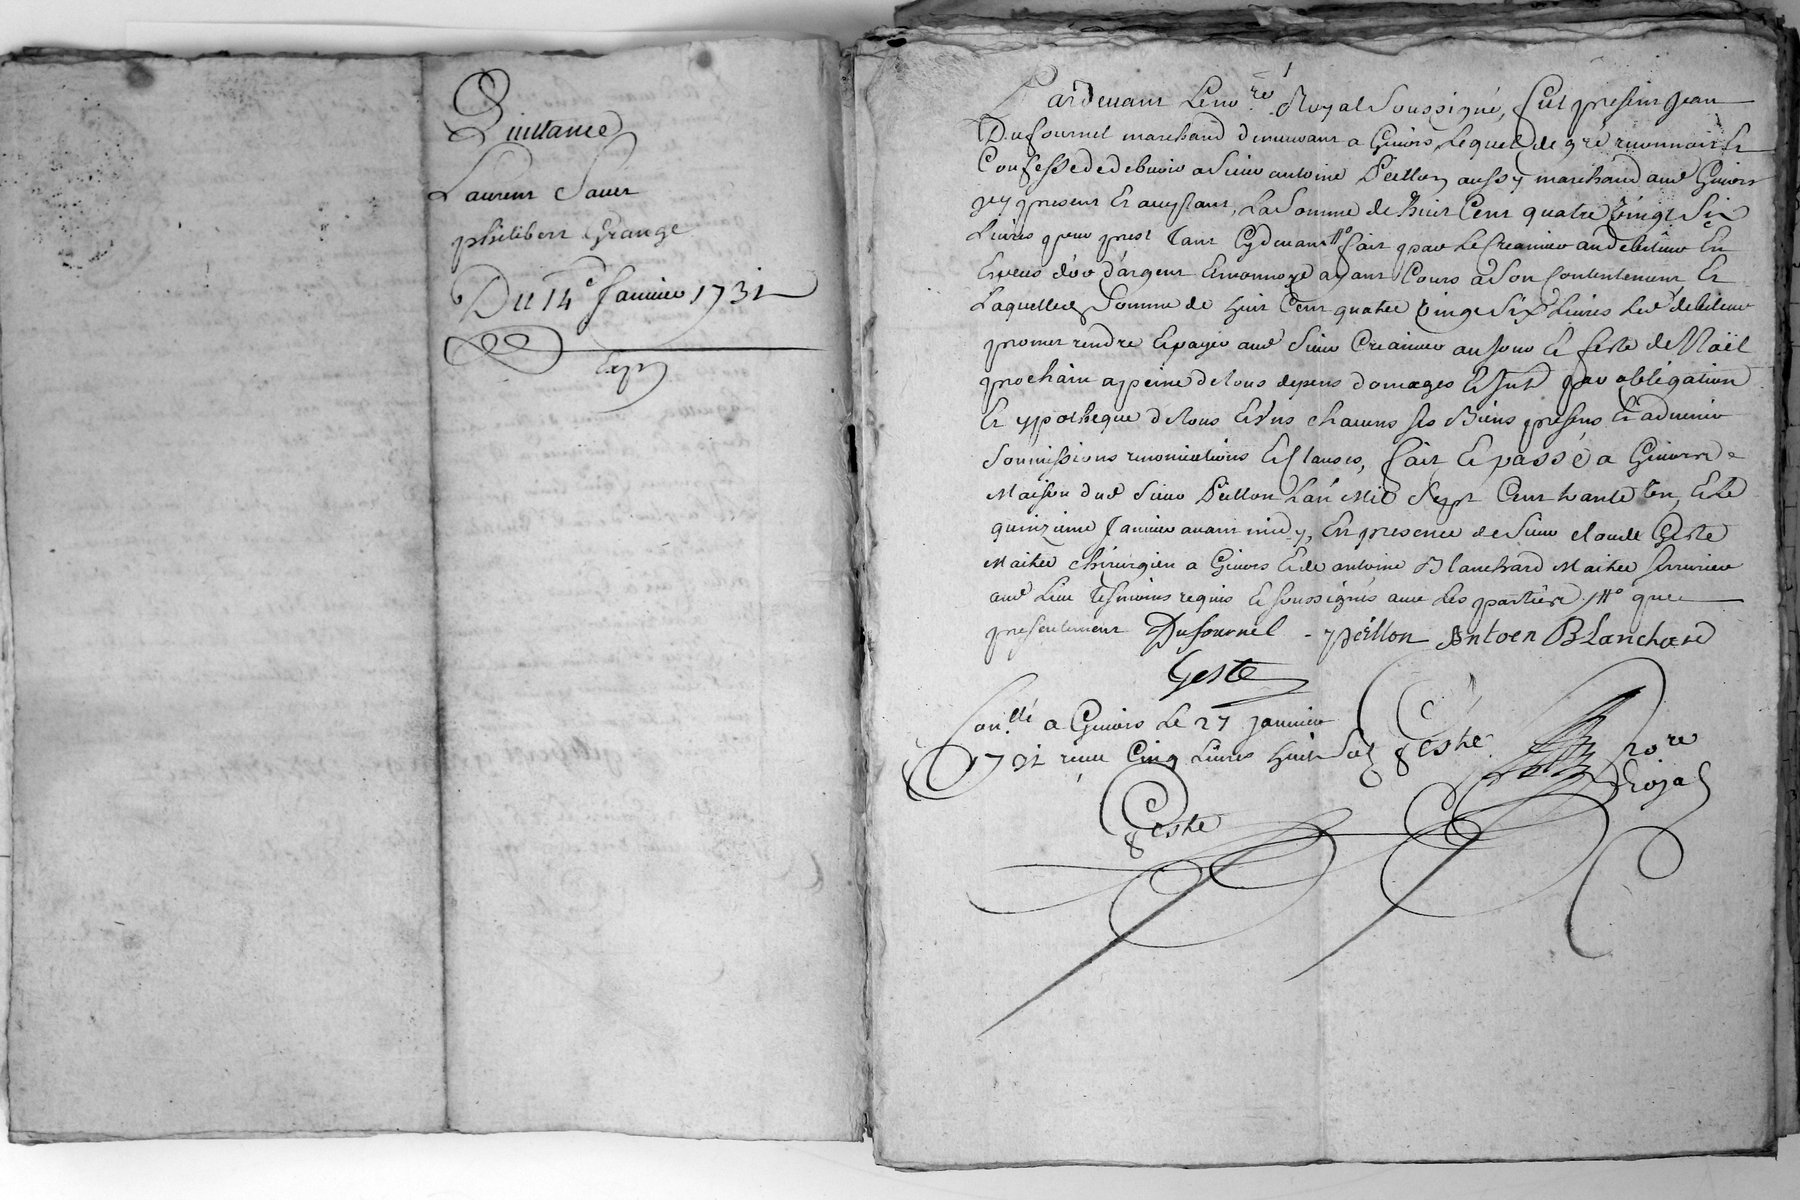 Quittance
Laurens Saver
philibert Grange
Du 14e Janvier 1731
Exp
Pardevant Le no.re Royal Soussigné, fut present Jean
Dufournel marchand demeurant a Givors Lequel de gré reconnoit Et
Confesse de debvoir a Sieur antoine Peillon aussy marchand aud Givors
Icy present Et aceptant, La Somme de huit Cent quatre vingt Six
Livres pour prest tant Cydevant fait par Le Creancier aud debiteur En
Especes d'or d'argent Et monnoye ayant Cours a Son Contentement Et
Laquelle Somme de huit Cent quatre vingt Six Livres Led debiteur
promet rendre Et payer aud Sieur Creancier au jour Et feste de Noël
prochain a peine de tous depens domages Et Int par obligation
Et ypotheque de tous Et uns chacuns ses Biens presens Et advenir
Soumissions renonciations Et Clauses, fait Et passé a Givors
Maison dud Sieur Peillon Lan Mil Sept Cent trante Un, Et Le
quinzieme Janvier avant midy, En presence de Sieur claude Geste
Maitre chirurgien a Givors Et de antoine Blanchard Maitre Serrurier
aud Lieu tesmoins requis Et soussignés avec Les parties que
presentement Dufournel - peillon Antoen BLanchard
Geste
Con.llé a Givors Le 27 janvier
1731 receu Cinq Livres huit Sols Geste
no re
Royal
Geste